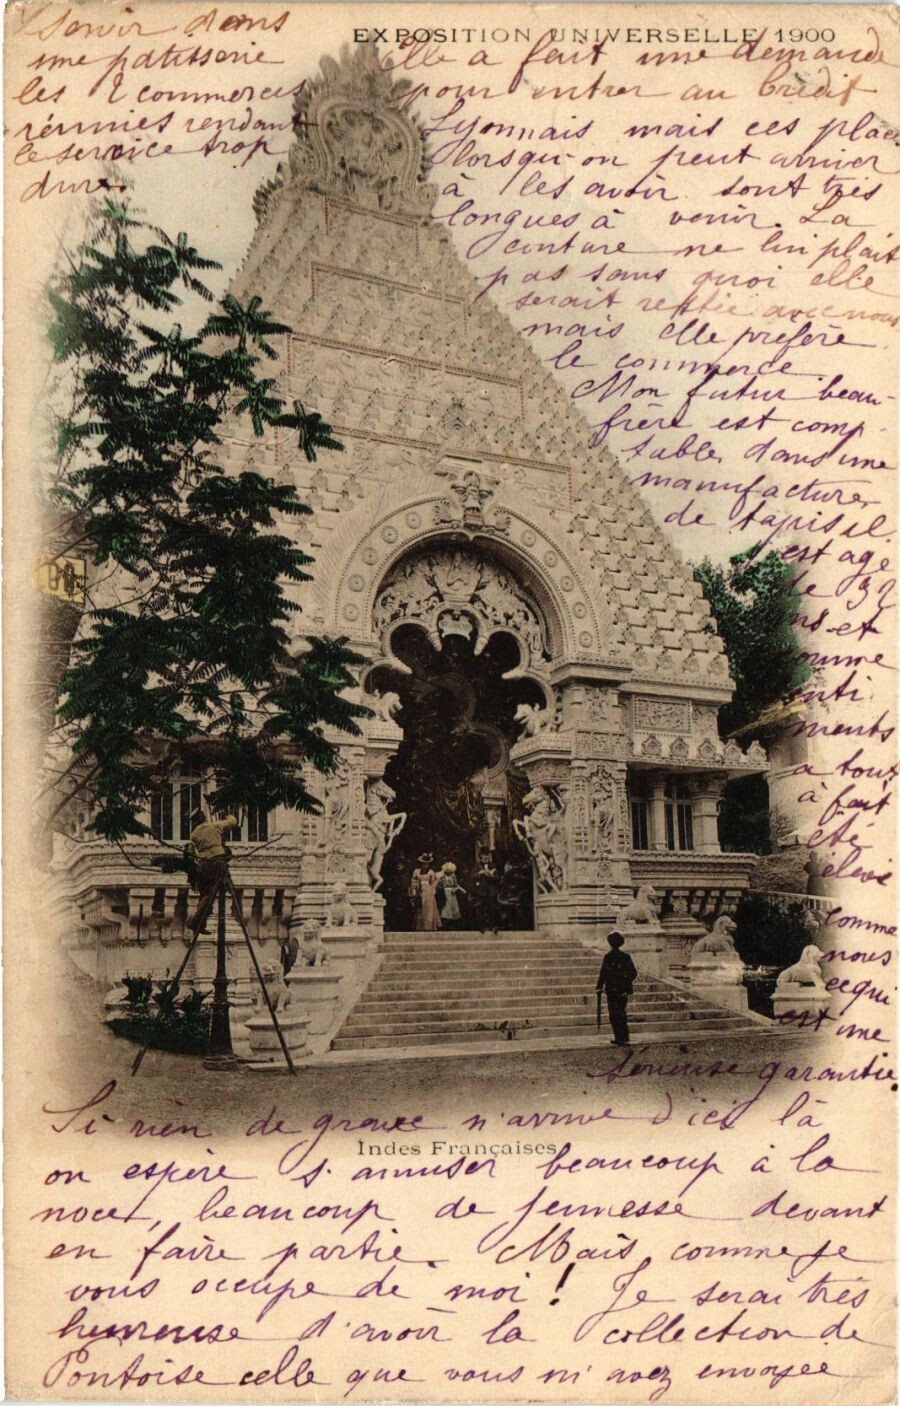 Servir dans
une patisserie
les 2 commerces
réunies rendant
le service trop
dur.
EXPOSITION UNIVERSELLE 1900
Elle a fait une demande
pour entrer au Crédit
Lyonnais mais ces places
lorsqu'on peut arriver
à les avoir sont très
longues à venir. La
couture ne lui plait
pas sans quoi elle
serait restée avec nous
mais elle préfère
le commerce.
Mon futur beau-
frère est comp-
table dans une
manufacture
de tapis il
est agé
de 32
ans et
comme
senti
ments
a tout
à fait
été
élevé
comme
nous
ce qui
est une
sérieuse garantie.
Si rien de grave n'arrive d'ici là
Indes Françaises
on espère s'amuser beaucoup à la
noce, beaucoup de jeunesse devant
en faire partie. Mais comme je
vous occupe de moi! Je serai très
heureuse d'avoir la collection de
Pontoise celle que vous m'avez envoyée